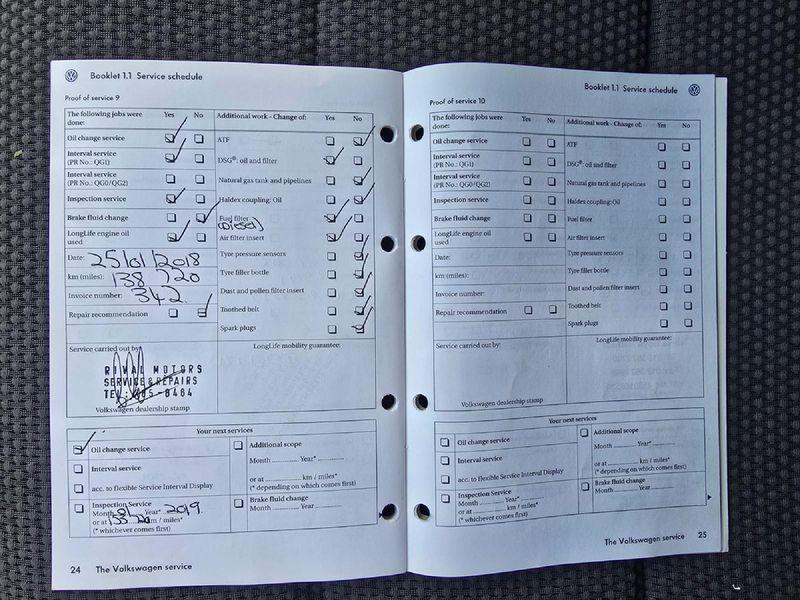 Booklet 1.1 Service schedule
Proof of service 9
The following jobs were done: Yes No
Oil change service
Interval service
(PR No.: QG1)
Interval service
(PR No.: QG0/QG2)
Inspection service
Brake fluid change
LongLife engine oil
used
Date: 25/01/2018
km (miles): 138 720
Invoice number: 342
Repair recommendation
Additional work - Change of: Yes No
ATF
DSG®: oil and filter
Natural gas tank and pipelines
Haldex coupling: Oil
Fuel filter
(Diesel)
Air filter insert
Tyre pressure sensors
Tyre filler bottle
Dust and pollen filter insert
Toothed belt
Spark plugs
Service carried out by:
RIVAL MOTORS
SERVICE & REPAIRS
Volkswagen dealership stamp
LongLife mobility guarantee:
Your next services
Oil change service
Interval service
acc. to flexible Service Interval Display
Inspection Service
Month Year* 2019
or at km / miles*
(* whichever comes first)
Additional scope
Month Year*
or at km / miles*
(* depending on which comes first)
Brake fluid change
Month Year
24 The Volkswagen service
Booklet 1.1 Service schedule
Proof of service 10
The following jobs were done: Yes No
Oil change service
Interval service
(PR No.: QG1)
Interval service
(PR No.: QG0/QG2)
Inspection service
Brake fluid change
LongLife engine oil
used
Date:
km (miles):
Invoice number:
Repair recommendation
Additional work - Change of: Yes No
ATF
DSG®: oil and filter
Natural gas tank and pipelines
Haldex coupling: Oil
Fuel filter
Air filter insert
Tyre pressure sensors
Tyre filler bottle
Dust and pollen filter insert
Toothed belt
Spark plugs
Service carried out by:
Volkswagen dealership stamp
LongLife mobility guarantee:
Your next services
Oil change service
Interval service
acc. to flexible Service Interval Display
Inspection Service
Month Year*
or at km / miles*
(* whichever comes first)
Additional scope
Month Year*
or at km / miles*
(* depending on which comes first)
Brake fluid change
Month Year
The Volkswagen service 25